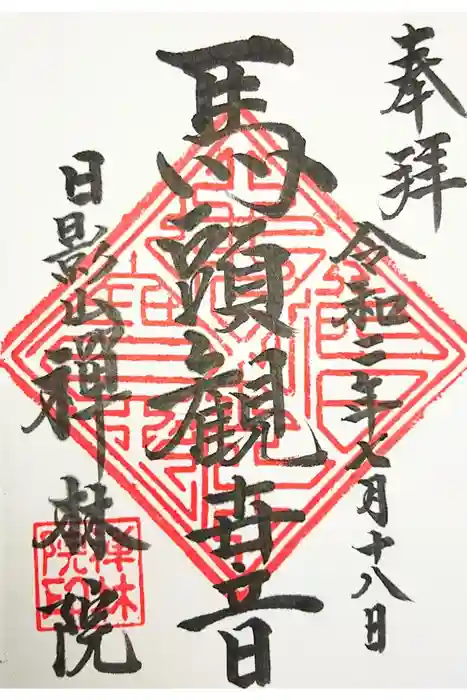 奉拝
令和二年七月十八日
馬頭観世音
日影山禅林院
禅林
院印